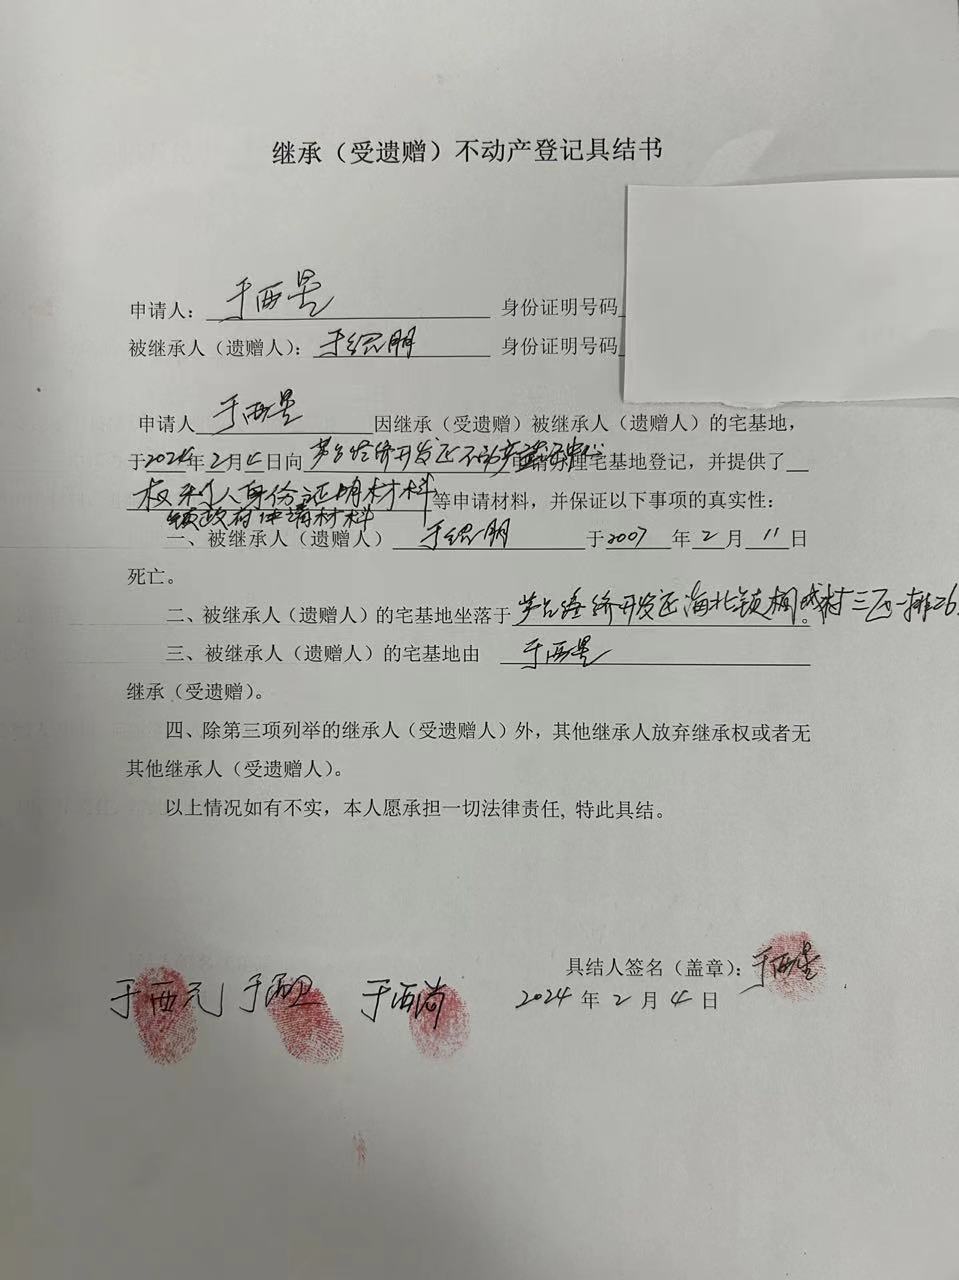 继承（受遗赠）不动产登记具结书
申请人：于西星 身份证明号码
被继承人（遗赠人）：于绍朋 身份证明号码
申请人 于西星 因继承（受遗赠）被继承人（遗赠人）的宅基地，
于2024年2月4日向 芦台经济开发区不动产登记中心 申请办理宅基地登记，并提供了
权利人身份证明材料 等申请材料，并保证以下事项的真实性：
镇政府申请材料
一、被继承人（遗赠人） 于绍朋 于2007年2月11日
死亡。
二、被继承人（遗赠人）的宅基地坐落于 芦台经济开发区海北镇 村三区一排26。
三、被继承人（遗赠人）的宅基地由 于西星
继承（受遗赠）。
四、除第三项列举的继承人（受遗赠人）外，其他继承人放弃继承权或者无
其他继承人（受遗赠人）。
以上情况如有不实，本人愿承担一切法律责任, 特此具结。
具结人签名（盖章）：于西星
于西元 于西卫 于西尚
2024年2月4日